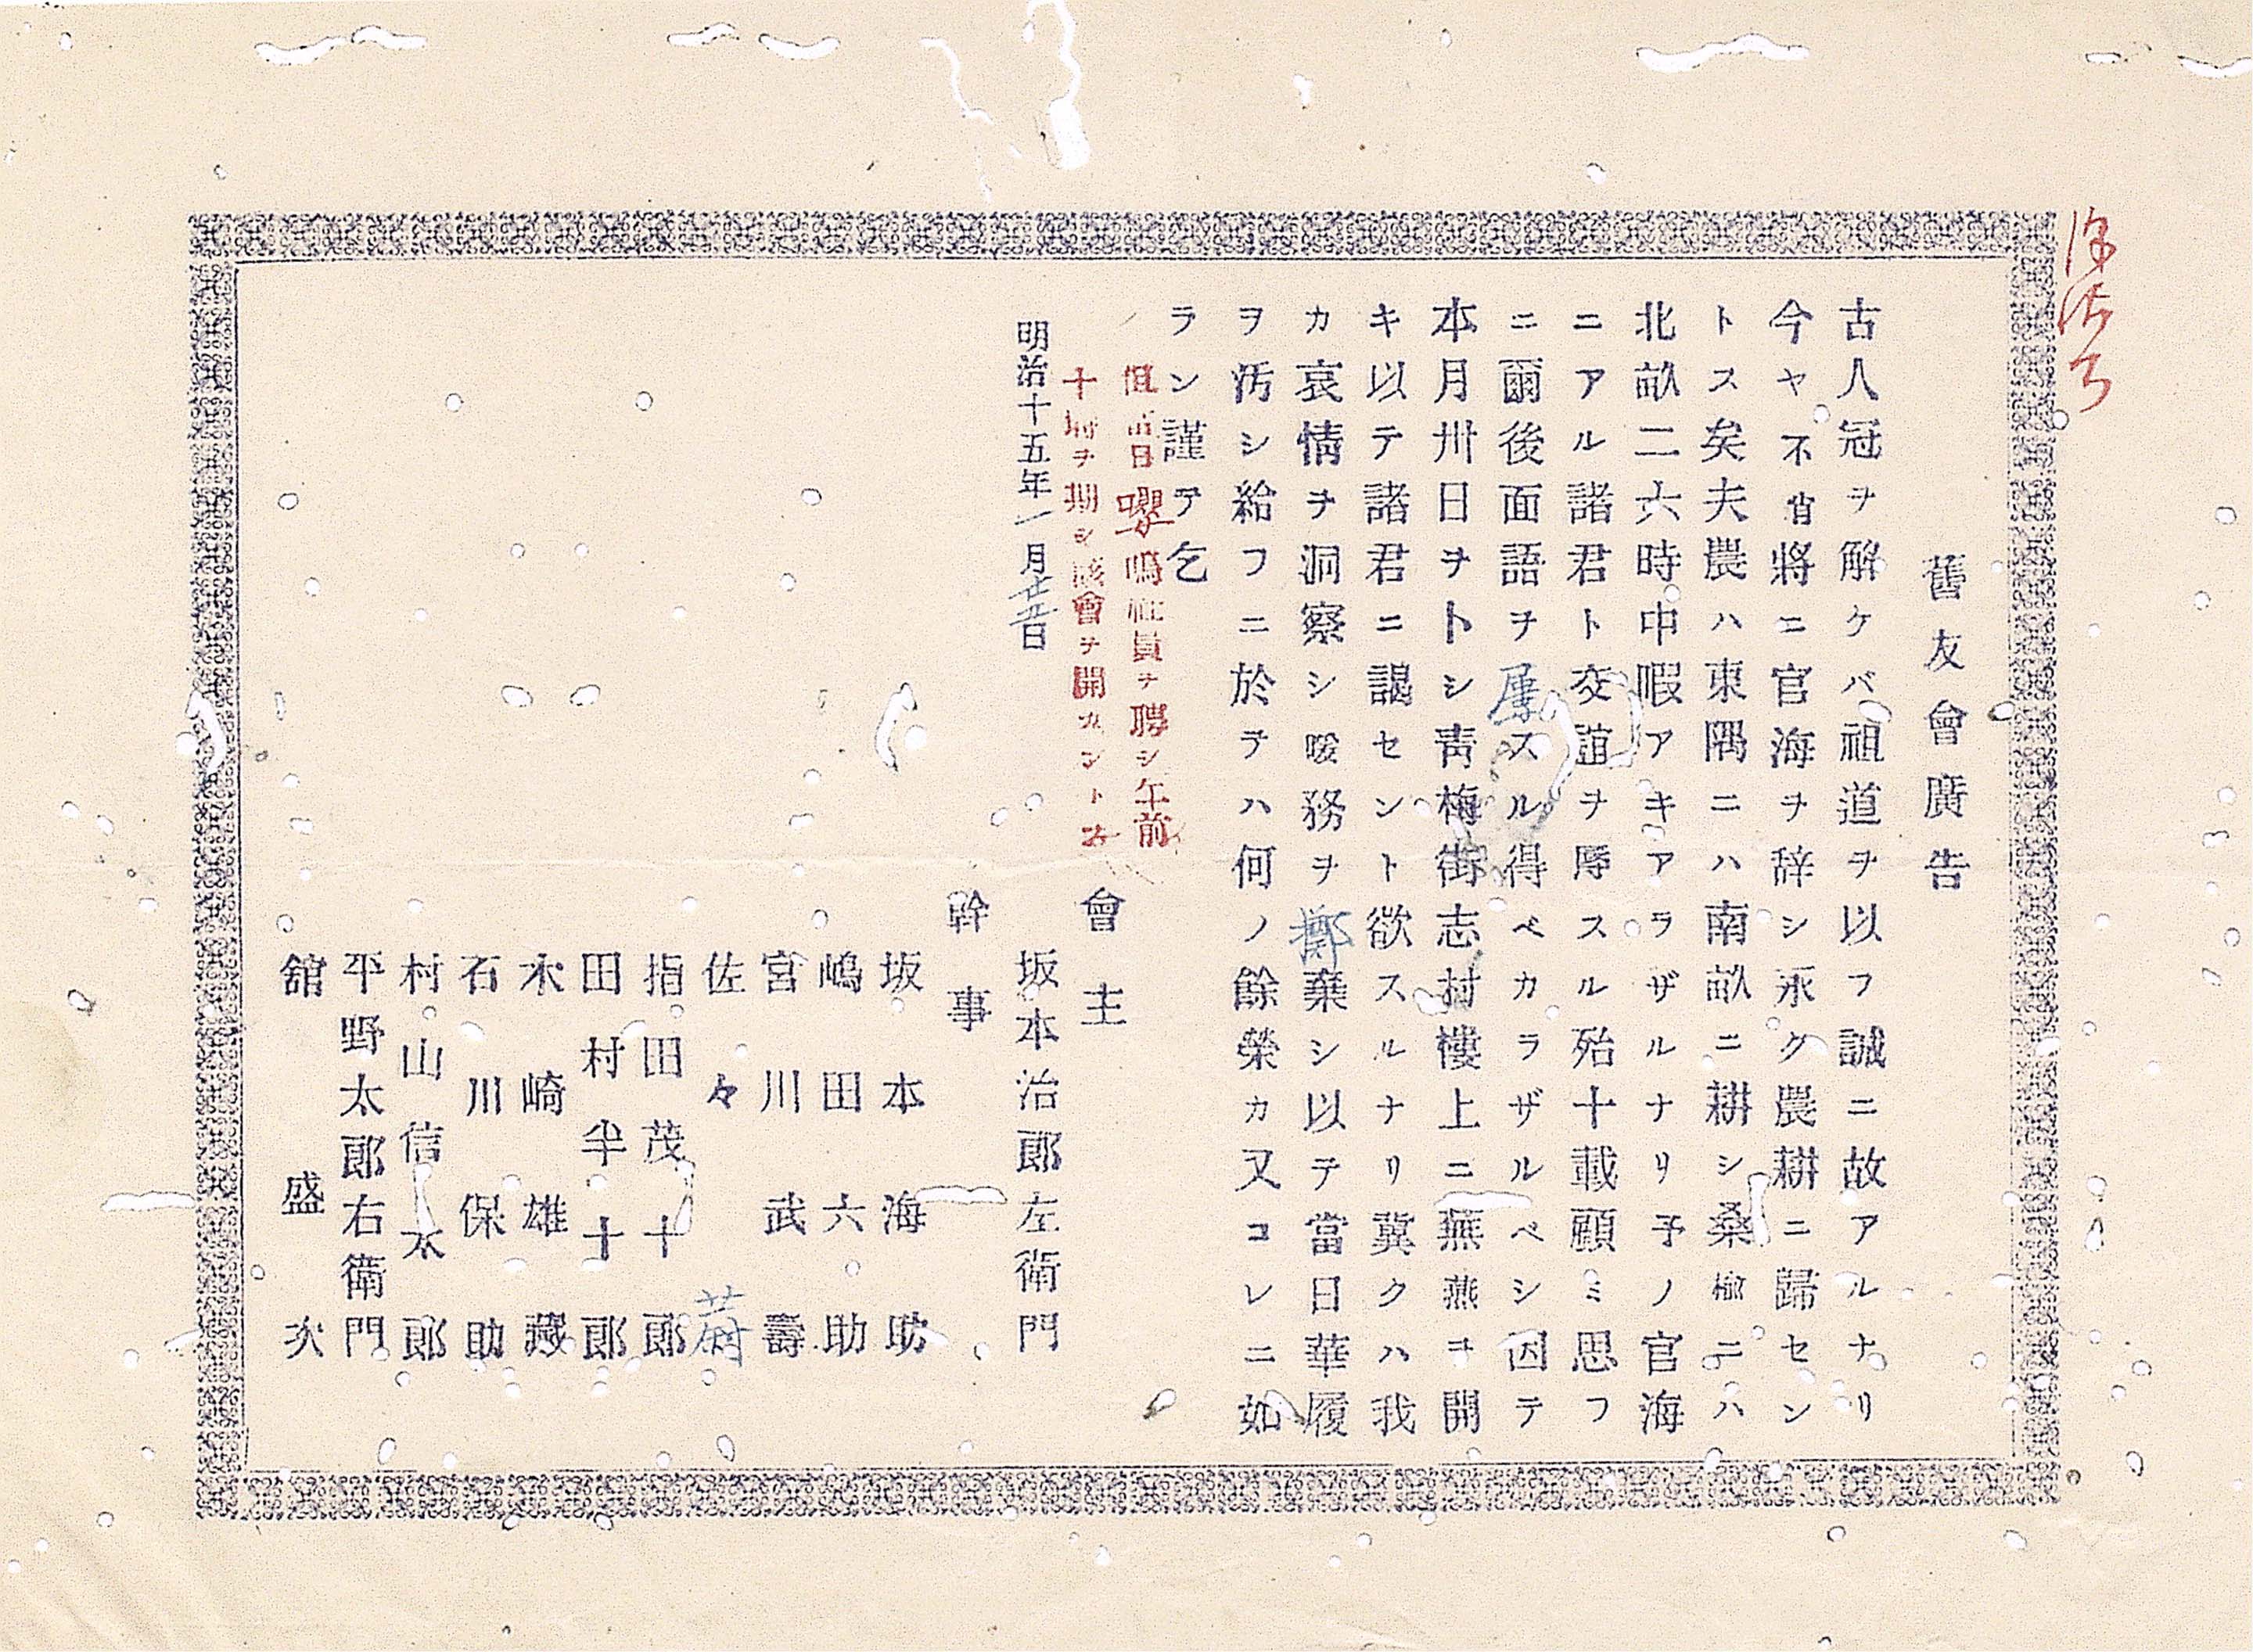 舊友會廣告
古人冠ヲ解ケバ祖道ヲ以フ誠ニ故アルナリ
今ヤ不省將ニ官海ヲ辞シ永ク農耕ニ歸セン
トス矣夫農ハ東隅ニハ南畝ニ耕シ桑楡ニハ
北畝二六時中暇アキアラザルナリ予ノ官海
ニアル諸君ト交誼ヲ厚スル殆十載顧ミ思フ
ニ爾後面語ヲ屡スル得ベカラザルベシ因テ
本月卅日ヲトシ靑梅街志村樓上ニ燕燕ヲ開
キ以テ諸君ニ謁セント欲スルナリ冀クハ我
カ哀情ヲ洞察シ唆務ヲ擲棄シ以テ當日華履
ヲ汚シ給フニ於テハ何ノ餘榮カ又コレニ如
ラン謹テ乞
但當日嚶鳴社員ヲ聘シ午前
十時ヲ期シ該會ヲ開カントス
明治十五年一月廿五日
會主
坂本治郎左衛門
幹事
坂本海助
嶋田六助
宮川武壽
佐々蔚
指田茂十郎
田村半十郎
木崎雄藏
石川保助
村山信太郎
平野太郎右衛門
舘盛次